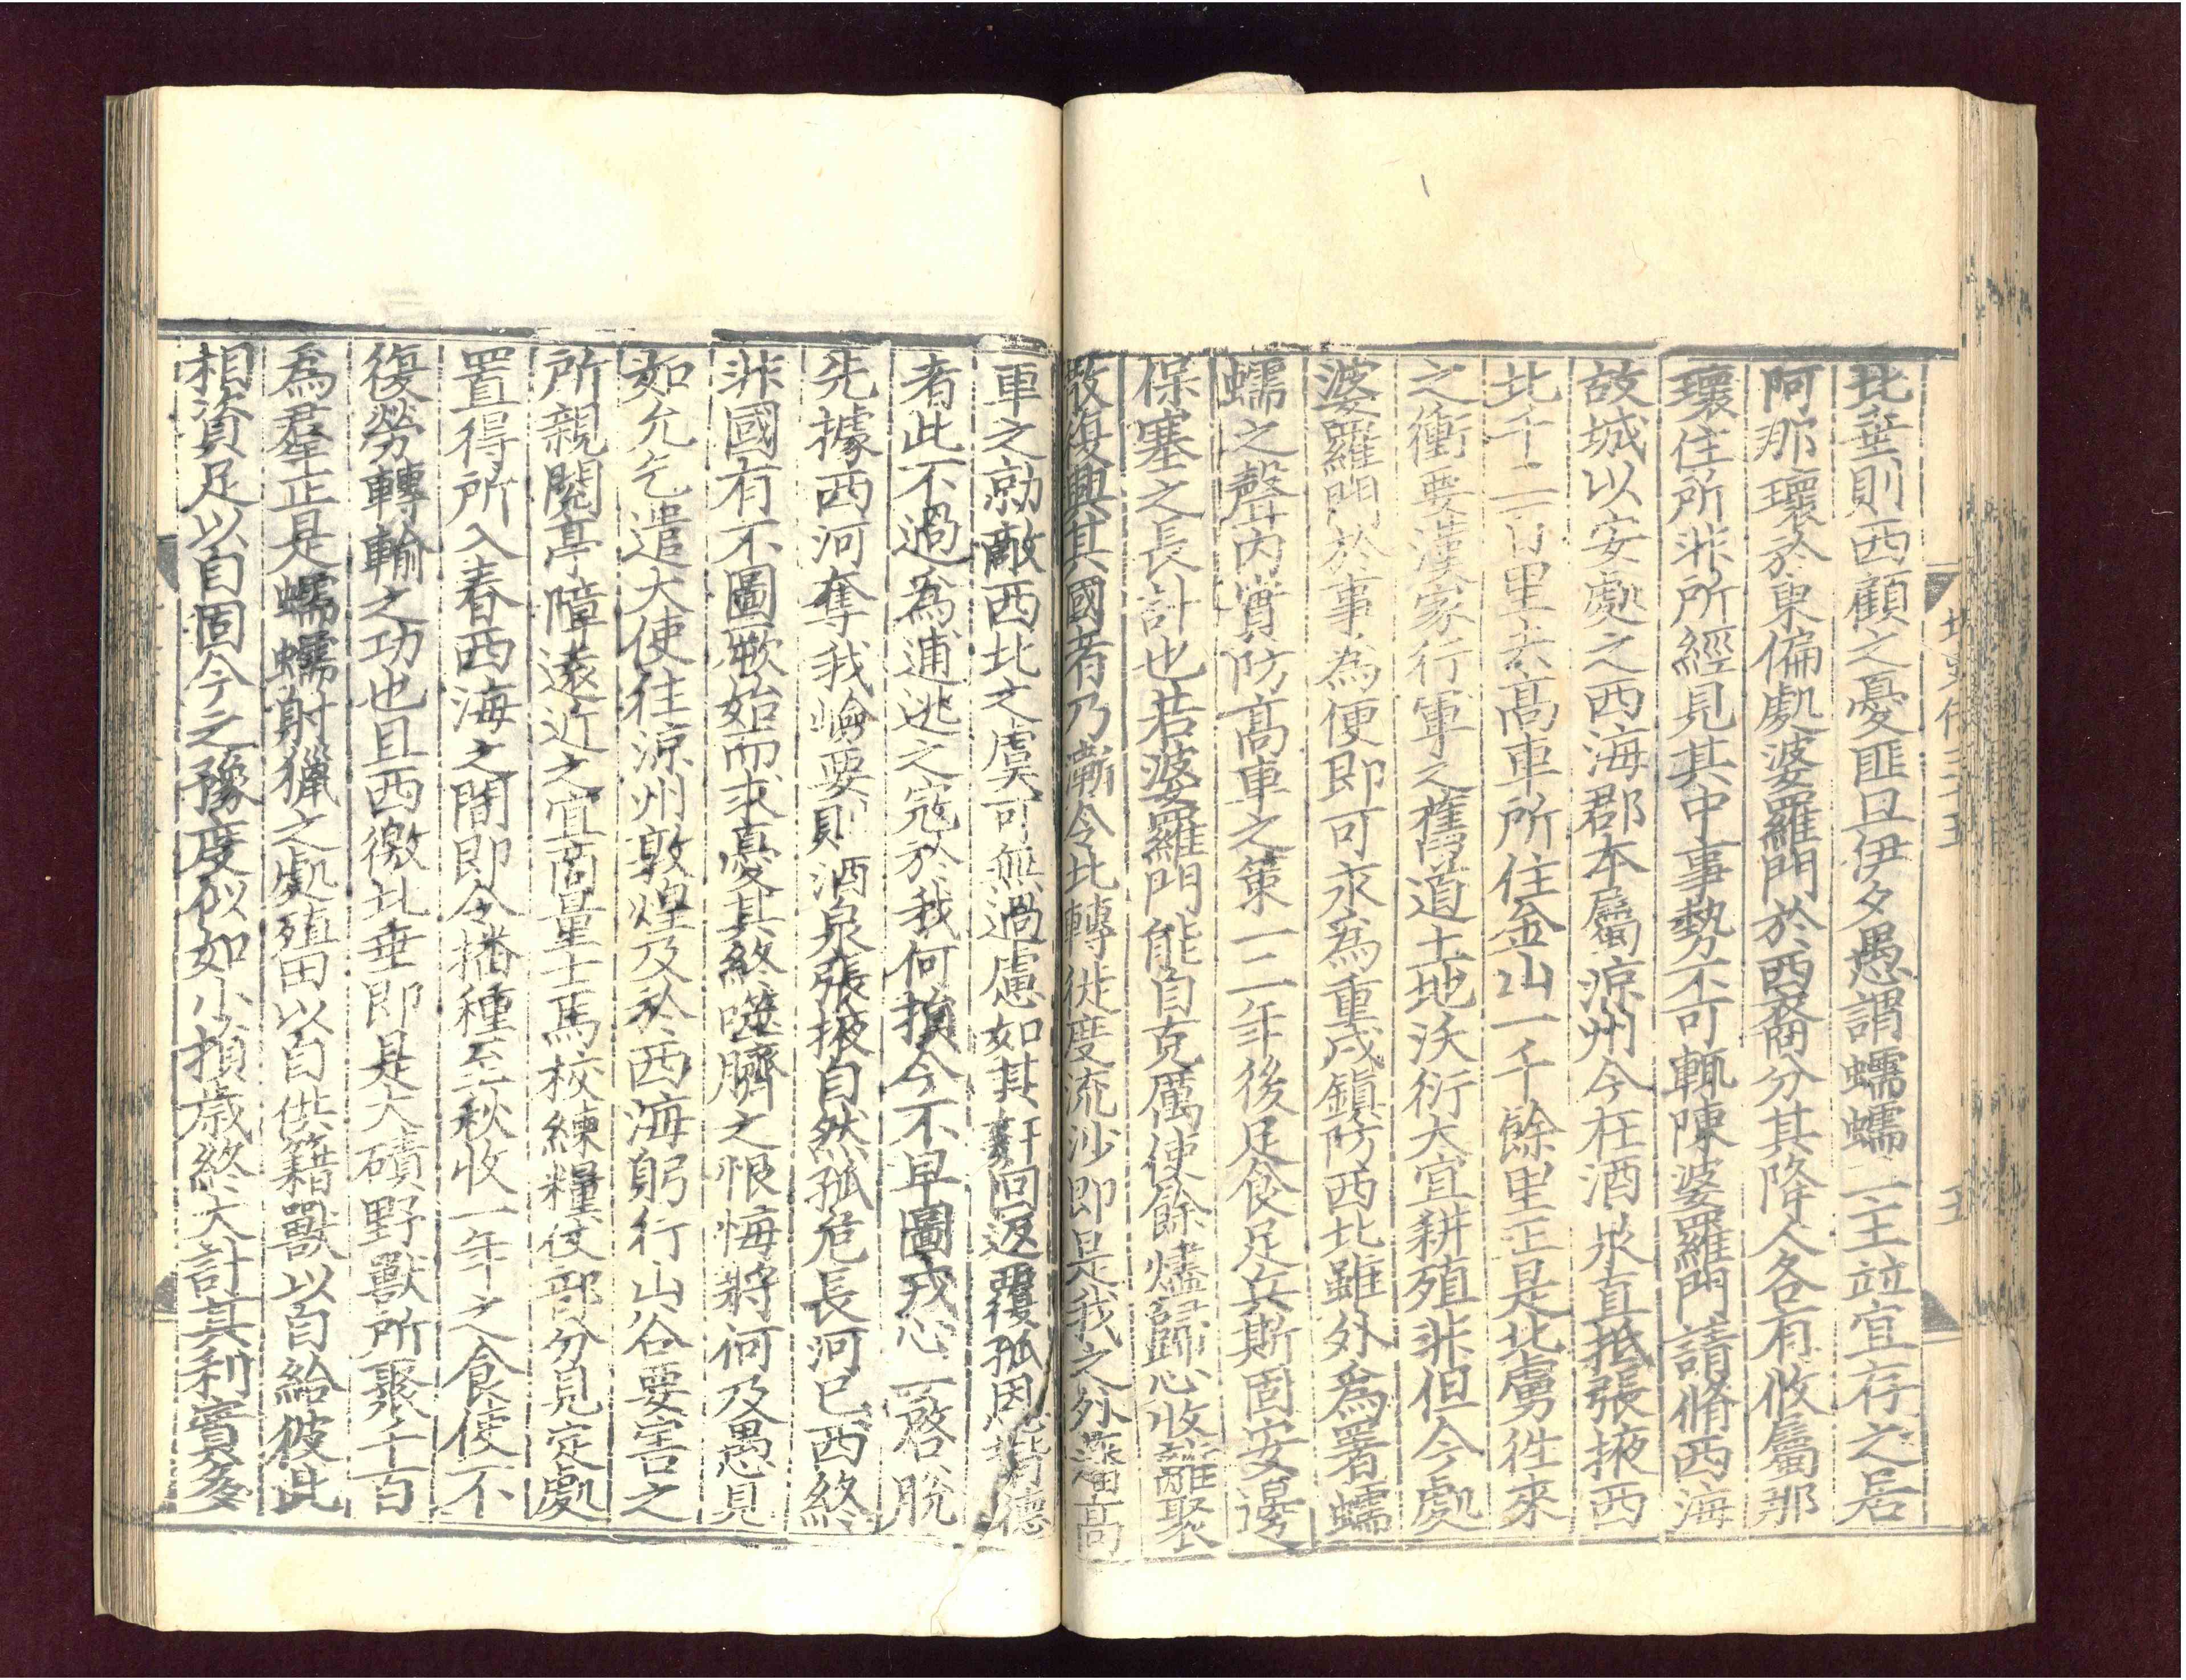 北垂則西顧之憂匪旦伊夕愚謂蠕蠕二主竝宜存之居
阿那瓌於東偏處婆羅門於西裔分其降人各有攸屬那
瓌住所非所經見其中事勢不可輒陳婆羅門請脩西海
故城以安處之西海郡本屬涼州今在酒泉直抵張掖西
北千二百里去高車所住金山一千餘里正是北虜往來
之衝要漢家行軍之舊道土地沃衍大宜耕殖非但今處
婆羅門於事為便即可永為重戍鎮防西北雖外為署蠕
蠕之聲內實防高車之策一二年後足食足兵斯固安邊
保塞之長計也若婆羅門能自克厲使餘燼歸心收離聚
散復興其國者乃漸令北轉徙度流沙即是我之外藩高
車之勍敵西北之虞可無過慮如其姧回返覆孤恩背德
者此不過為逋逃之寇於我何損今不早圖戎心一啓脫
先據西河奪我嶮要則酒泉張掖自然孤危長河已西終
非國有不圖厥始而求憂其終噬臍之恨悔將何及愚見
如允乞遣大使往涼州敦煌及於西海躬行山谷要害之
所親閱亭障遠近之宜商量士馬校練糧仗部分見定處
置得所入春西海之間即令播種至秋收一年之食使不
復勞轉輸之功也且西徼北垂即是大磧野獸所聚千百
為羣正是蠕蠕射獵之處殖田以自供籍獸以自給彼此
相資足以自固今之豫度似如小損歲終大計其利實多
北史傳三十五
五